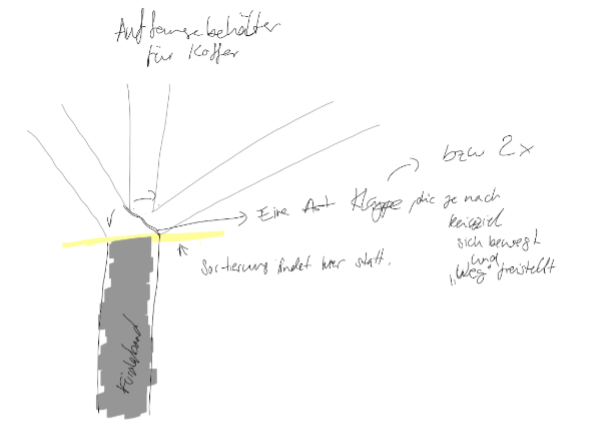 Auffangebehälter
für Koffer
bzw 2x
Eine Art Klappe, die je nach
Reiseziel
sich bewegt
und
„Weg" freistellt
Sortierung findet hier statt.
Förderband